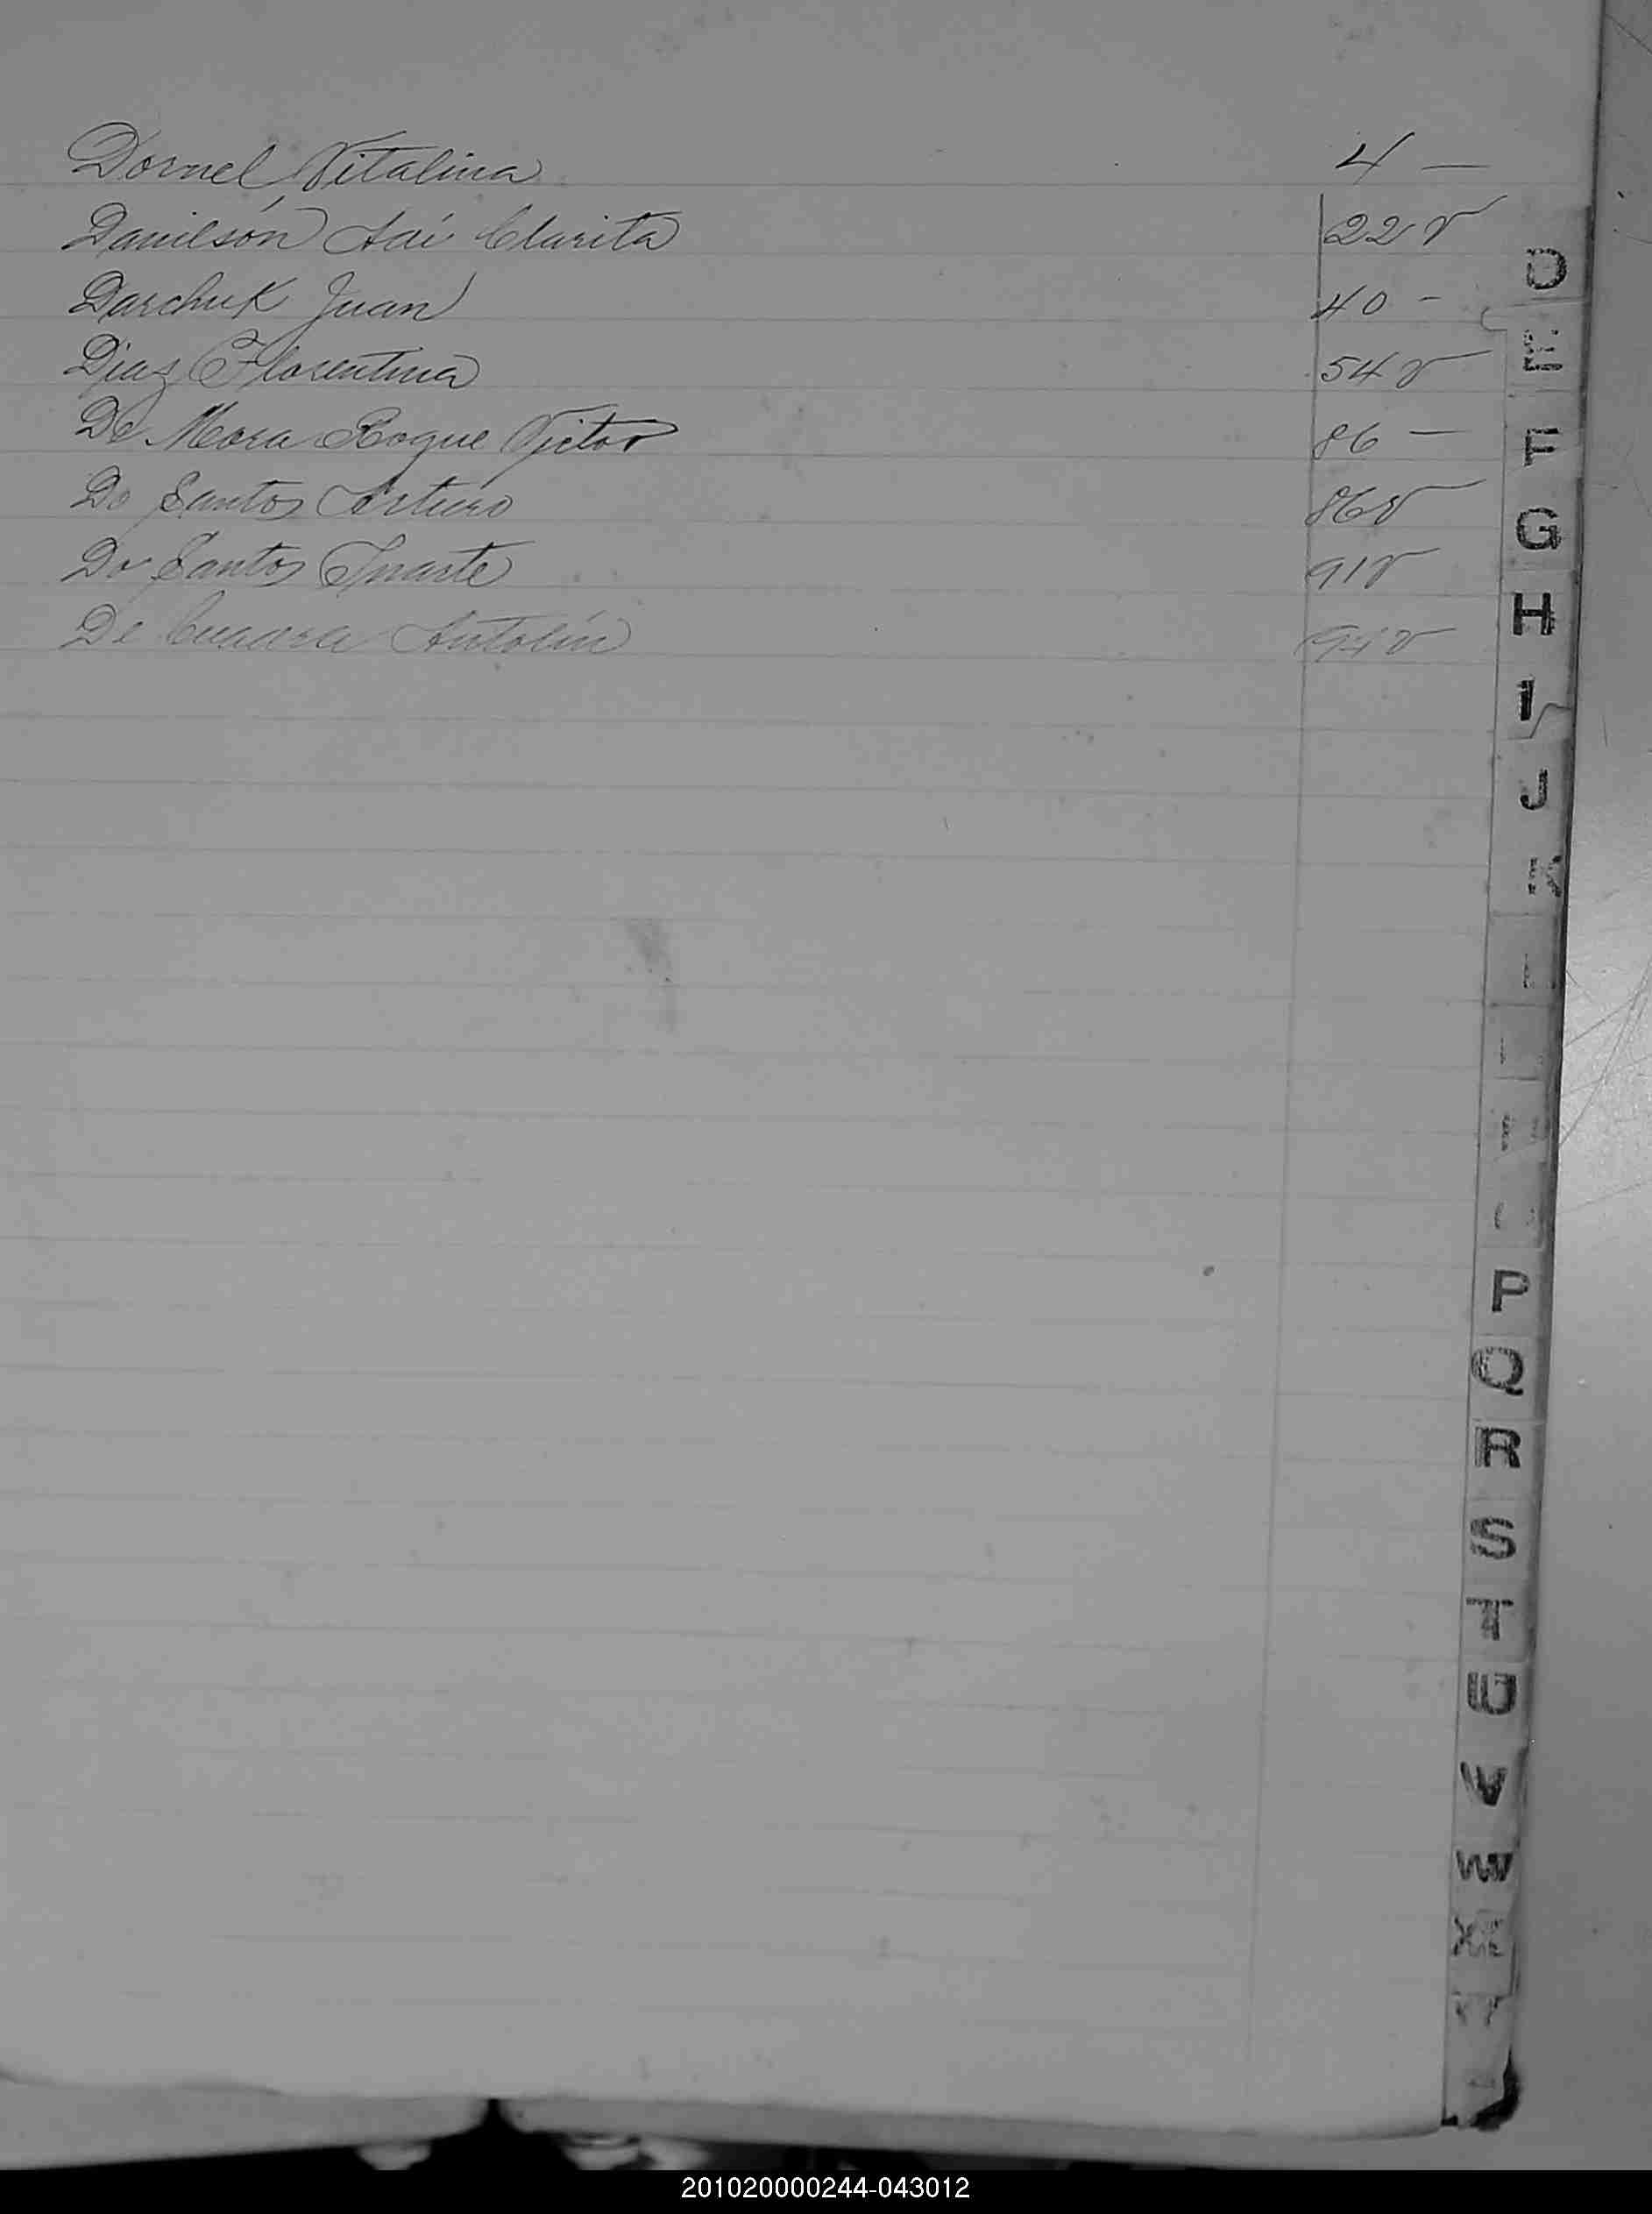 Dornel Vitalina 4 —
Danilsón Clarita 22 v
Darchuk Juan 40 -
Diaz Florentina 54 v
De Mora Roque Victor 86 —
Do Santos Arturo 86 v
Do Santos 91 v
De Antolín 94 v
D
E
F
G
H
I
J
K
P
Q
R
S
T
U
V
W
X
Y
201020000244-043012